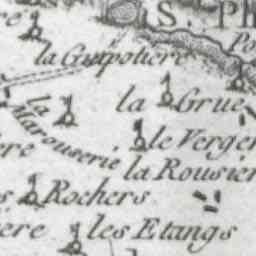 S. Ph
la Guipoliere
la Grue
la Marouserie
le Verger
ere
la Rousier
Rochers
iere
les Etangs